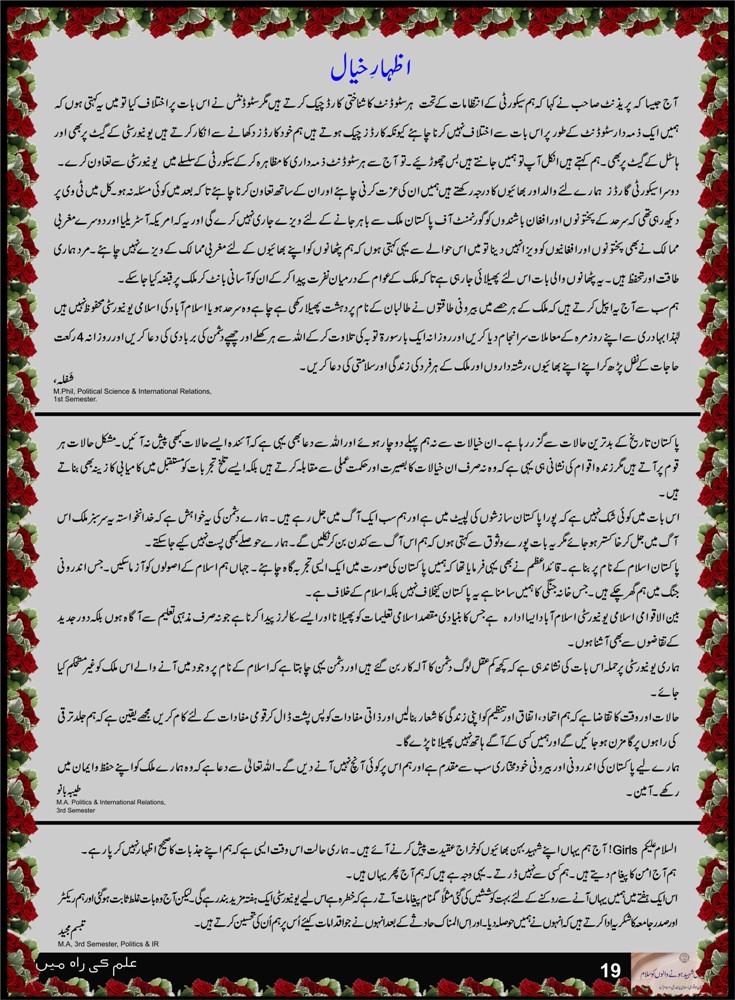 اظہارِ خیال
آج جیسا کہ پریذنٹ صاحب نے کہا کہ ہم سیکورٹی کے انتظامات کے تحت ہر سٹوڈنٹ کا شناختی کارڈ چیک کرتے ہیں مگر سٹوڈنٹس نے اس بات پر اختلاف کیا تو میں یہ کہتی ہوں کہ
ہمیں ایک ذمہ دار سٹوڈنٹ کے طور پر اس بات سے اختلاف نہیں کرنا چاہئے کیونکہ کارڈز چیک ہوتے ہیں ہم خود کارڈز دکھانے سے انکار کرتے ہیں یونیورسٹی کے گیٹ پر بھی اور
ہاسٹل کے گیٹ پر بھی۔ ہم کہتے ہیں انکل آپ تو ہمیں جانتے ہیں بس چھوڑیئے۔ تو آج سے ہر سٹوڈنٹ ذمہ داری کا مظاہرہ کر کے سیکورٹی کے سلسلے میں یونیورسٹی سے تعاون کرے۔
دوسرا سیکورٹی گارڈز ہمارے لئے والد اور بھائیوں کا درجہ رکھتے ہیں ہمیں ان کی عزت کرنی چاہئے اور ان کے ساتھ تعاون کرنا چاہئے تاکہ بعد میں کوئی مسئلہ نہ ہو۔ کل میں ٹی وی پر
دیکھ رہی تھی کہ سرحد کے پختونوں اور افغان باشندوں کو گورنمنٹ آف پاکستان ملک سے باہر جانے کے لئے ویزے جاری نہیں کرے گی اور یہ کہ امریکہ آسٹریلیا اور دوسرے مغربی
ممالک نے بھی پختونوں اور افغانیوں کو ویزا نہیں دینا تو میں اس حوالے سے یہی کہتی ہوں کہ ہم پٹھانوں کو اپنے بھائیوں کے لئے مغربی ممالک کے ویزے نہیں چاہئے۔ مرد ہماری
طاقت اور تحفظ ہیں۔ یہ پٹھانوں والی بات اس لئے پھیلائی جا رہی ہے تاکہ ملک کے عوام کے درمیان نفرت پیدا کر کے ان کو آسانی بانٹ کر ملک پر قبضہ کیا جا سکے۔
ہم سب سے آج یہ اپیل کرتے ہیں کہ ملک کے ہر حصے میں بیرونی طاقتوں نے طالبان کے نام پر دہشت پھیلا رکھی ہے چاہے وہ سرحد ہو یا اسلام آباد کی اسلامی یونیورسٹی محفوظ نہیں ہیں
لہٰذا بہادری سے اپنے روزمرہ کے معاملات سرانجام دیا کریں اور روزانہ ایک بار سورۃ توبہ کی تلاوت کر کے اللہ سے ہر کھلے اور چھپے دشمن کی بربادی کی دعا کریں اور روزانہ 4 رکعت
حاجات کے نفل پڑھ کر اپنے اپنے بھائیوں، رشتہ داروں اور ملک کے ہر فرد کی زندگی اور سلامتی کی دعا کریں۔
M.Phil, Political Science & International Relations,
1st Semester.
پاکستان تاریخ کے بدترین حالات سے گزر رہا ہے۔ ان خیالات سے نہ ہم پہلے دوچار ہوئے اور اللہ سے دعا بھی یہی ہے کہ آئندہ ایسے حالات کبھی پیش نہ آئیں۔ مشکل حالات ہر
قوم پر آتے ہیں مگر زندہ اقوام کی نشانی ہی یہی ہے کہ وہ نہ صرف ان خیالات کا بصیرت اور حکمت عملی سے مقابلہ کرتے ہیں بلکہ ایسے تلخ تجربات کو مستقبل میں کامیابی کا زینہ بھی بناتے
ہیں۔
اس بات میں کوئی شک نہیں ہے کہ پورا پاکستان سازشوں کی لپیٹ میں ہے اور ہم سب ایک آگ میں جل رہے ہیں۔ ہمارے دشمن کی یہ خواہش ہے کہ خدانخواستہ یہ سرسبز ملک اس
آگ میں جل کر خاکستر ہو جائے مگر یہ بات پورے وثوق سے کہتی ہوں کہ ہم اس آگ سے کندن بن کر نکلیں گے۔ ہمارے حوصلے کبھی پست نہیں کیے جا سکتے۔
پاکستان اسلام کے نام پر بنا ہے۔ قائداعظم نے بھی یہی فرمایا تھا کہ ہمیں پاکستان کی صورت میں ایک ایسی تجربہ گاہ چاہئے۔ جہاں ہم اسلام کے اصولوں کو آزما سکیں۔ جس اندرونی
جنگ میں ہم گھر چکے ہیں۔ جس خانہ جنگی کا ہمیں سامنا ہے یہ پاکستان کیخلاف نہیں بلکہ اسلام کے خلاف ہے۔
بین الاقوامی اسلامی یونیورسٹی اسلام آباد ایسا ادارہ ہے جس کا بنیادی مقصد اسلامی تعلیمات کو پھیلانا اور ایسے سکالرز پیدا کرنا ہے جو نہ صرف مذہبی تعلیم سے آگاہ ہوں بلکہ دور جدید
کے تقاضوں سے بھی آشنا ہوں۔
ہماری یونیورسٹی پر حملہ اس بات کی نشاندہی ہے کہ کچھ کم عقل لوگ دشمن کا آلہ کار بن گئے ہیں اور دشمن یہی چاہتا ہے کہ اسلام کے نام پر وجود میں آنے والے اس ملک کو غیر مستحکم کیا
جائے۔
حالات اور وقت کا تقاضا ہے کہ ہم اتحاد، اتفاق اور تنظیم کو اپنی زندگی کا شعار بنا لیں اور ذاتی مفادات کو پس پشت ڈال کر قومی مفادات کے لئے کام کریں مجھے یقین ہے کہ ہم جلد ترقی
کی راہوں پر گامزن ہو جائیں گے اور ہمیں کسی کے آگے ہاتھ نہیں پھیلانا پڑے گا۔
ہمارے لیے پاکستان کی اندرونی اور بیرونی خودمختاری سب سے مقدم ہے اور ہم اس پر کوئی آنچ نہیں آنے دیں گے۔ اللہ تعالیٰ سے دعا ہے کہ وہ ہمارے ملک کو اپنے حفظ و ایمان میں
رکھے۔ آمین۔
طیبہ بانو
M.A. Politics & International Relations,
3rd Semester
السلام علیکم Girls! آج ہم یہاں اپنے شہید بہن بھائیوں کو خراج عقیدت پیش کرنے آئے ہیں۔ ہماری حالت اس وقت ایسی ہے کہ ہم اپنے جذبات کا صحیح اظہار نہیں کر پا رہے۔
ہم آج امن کا پیغام دیتے ہیں۔ ہم کسی سے نہیں ڈرتے۔ یہی وجہ ہے کہ ہم آج پھر یہاں ہیں۔
اس ایک ہفتے میں ہمیں یہاں آنے سے روکنے کے لئے بہت کوششیں کی گئی مثلاً گمنام پیغامات آتے رہے کہ خطرہ ہے اس لیے یونیورسٹی ایک ہفتہ مزید بند رہے گی۔ لیکن آج وہ بات غلط ثابت ہو گئی اور ہم ریکٹر
اور صدر جامعہ کا شکریہ ادا کرتے ہیں کہ انہوں نے ہمیں حوصلہ دیا۔ اور اس المناک حادثے کے بعد انہوں نے جو اقدامات کیئے اُس پر ہم اُن کی تحسین کرتے ہیں۔
تبسم مجید
M.A, 3rd Semester, Politics & IR
علم کی راہ میں
19
شہید ہونے والوں کو سلام